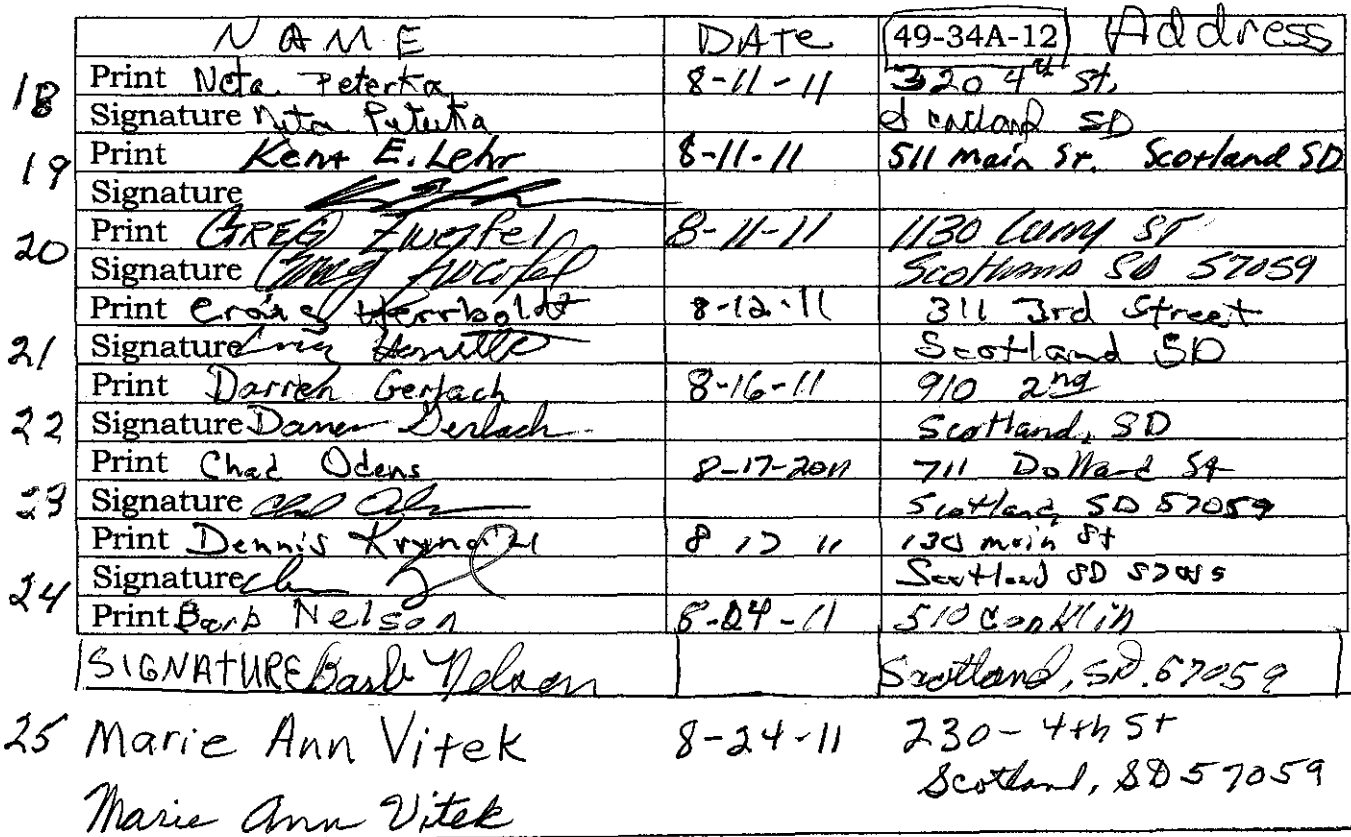 NAME DATE 49-34A-12 Address
18 Print Neta Peterka 8-11-11 320 4th St.
Signature Neta Peterka Scotland SD
19 Print Kent E. Lehr 8-11-11 511 Main St. Scotland SD
Signature
20 Print GREG Zweifel 8-11-11 1130 Curry ST
Signature Greg Zweifel Scotland SD 57059
Print Craig Herrboldt 8-12-11 311 3rd Street
21 Signature Craig Herrboldt Scotland SD
Print Darren Gerlach 8-16-11 910 2nd
22 Signature Darren Gerlach Scotland, SD
Print Chad Odens 8-17-2011 711 Dollard St
23 Signature Chad Scotland SD 57059
Print Dennis 8 17 11 130 main St
24 Signature Scotland SD
Print Barb Nelson 8-24-11 510 Conklin
SIGNATURE Barb Nelson Scotland, SD. 57059
25 Marie Ann Vitek 8-24-11 230-4th St
Scotland, SD 57059
Marie Ann Vitek